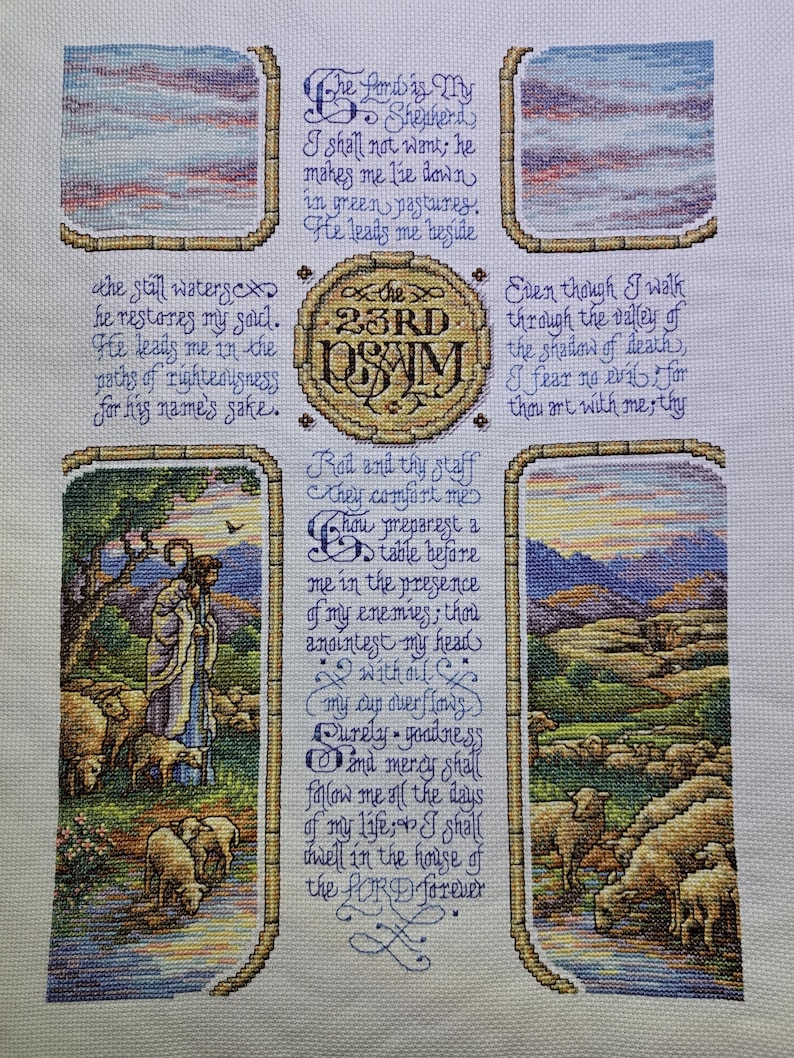 The Lord is My
Shepherd,
I shall not want; he
makes me lie down
in green pastures.
He leads me beside
the still waters
he restores my soul.
He leads me in the
paths of righteousness
for his name's sake.
the
23RD
PSALM
Even though I walk
through the valley of
the shadow of death,
I fear no evil; for
thou art with me; thy
Rod and thy staff
they comfort me
Thou preparest a
table before
me in the presence
of my enemies; thou
anointest my head
with oil
my cup overflows.
Surely goodness
and mercy shall
follow me all the days
of my life; I shall
dwell in the house of
the LORD forever